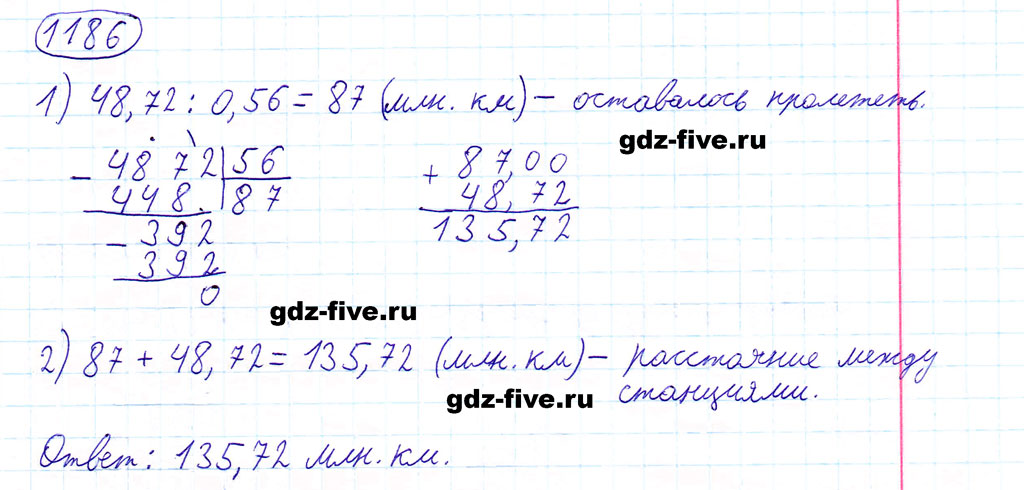 1186
1) 48,72 : 0,56 = 87 (млн. км) – оставалось пролететь.
gdz-five.ru
– 4872 | 56
448. | 87
– 392
392
0
+ 87,00
48,72
135,72
gdz-five.ru
2) 87 + 48,72 = 135,72 (млн. км) – расстояние между
станциями.
gdz-five.ru
Ответ: 135,72 млн. км.